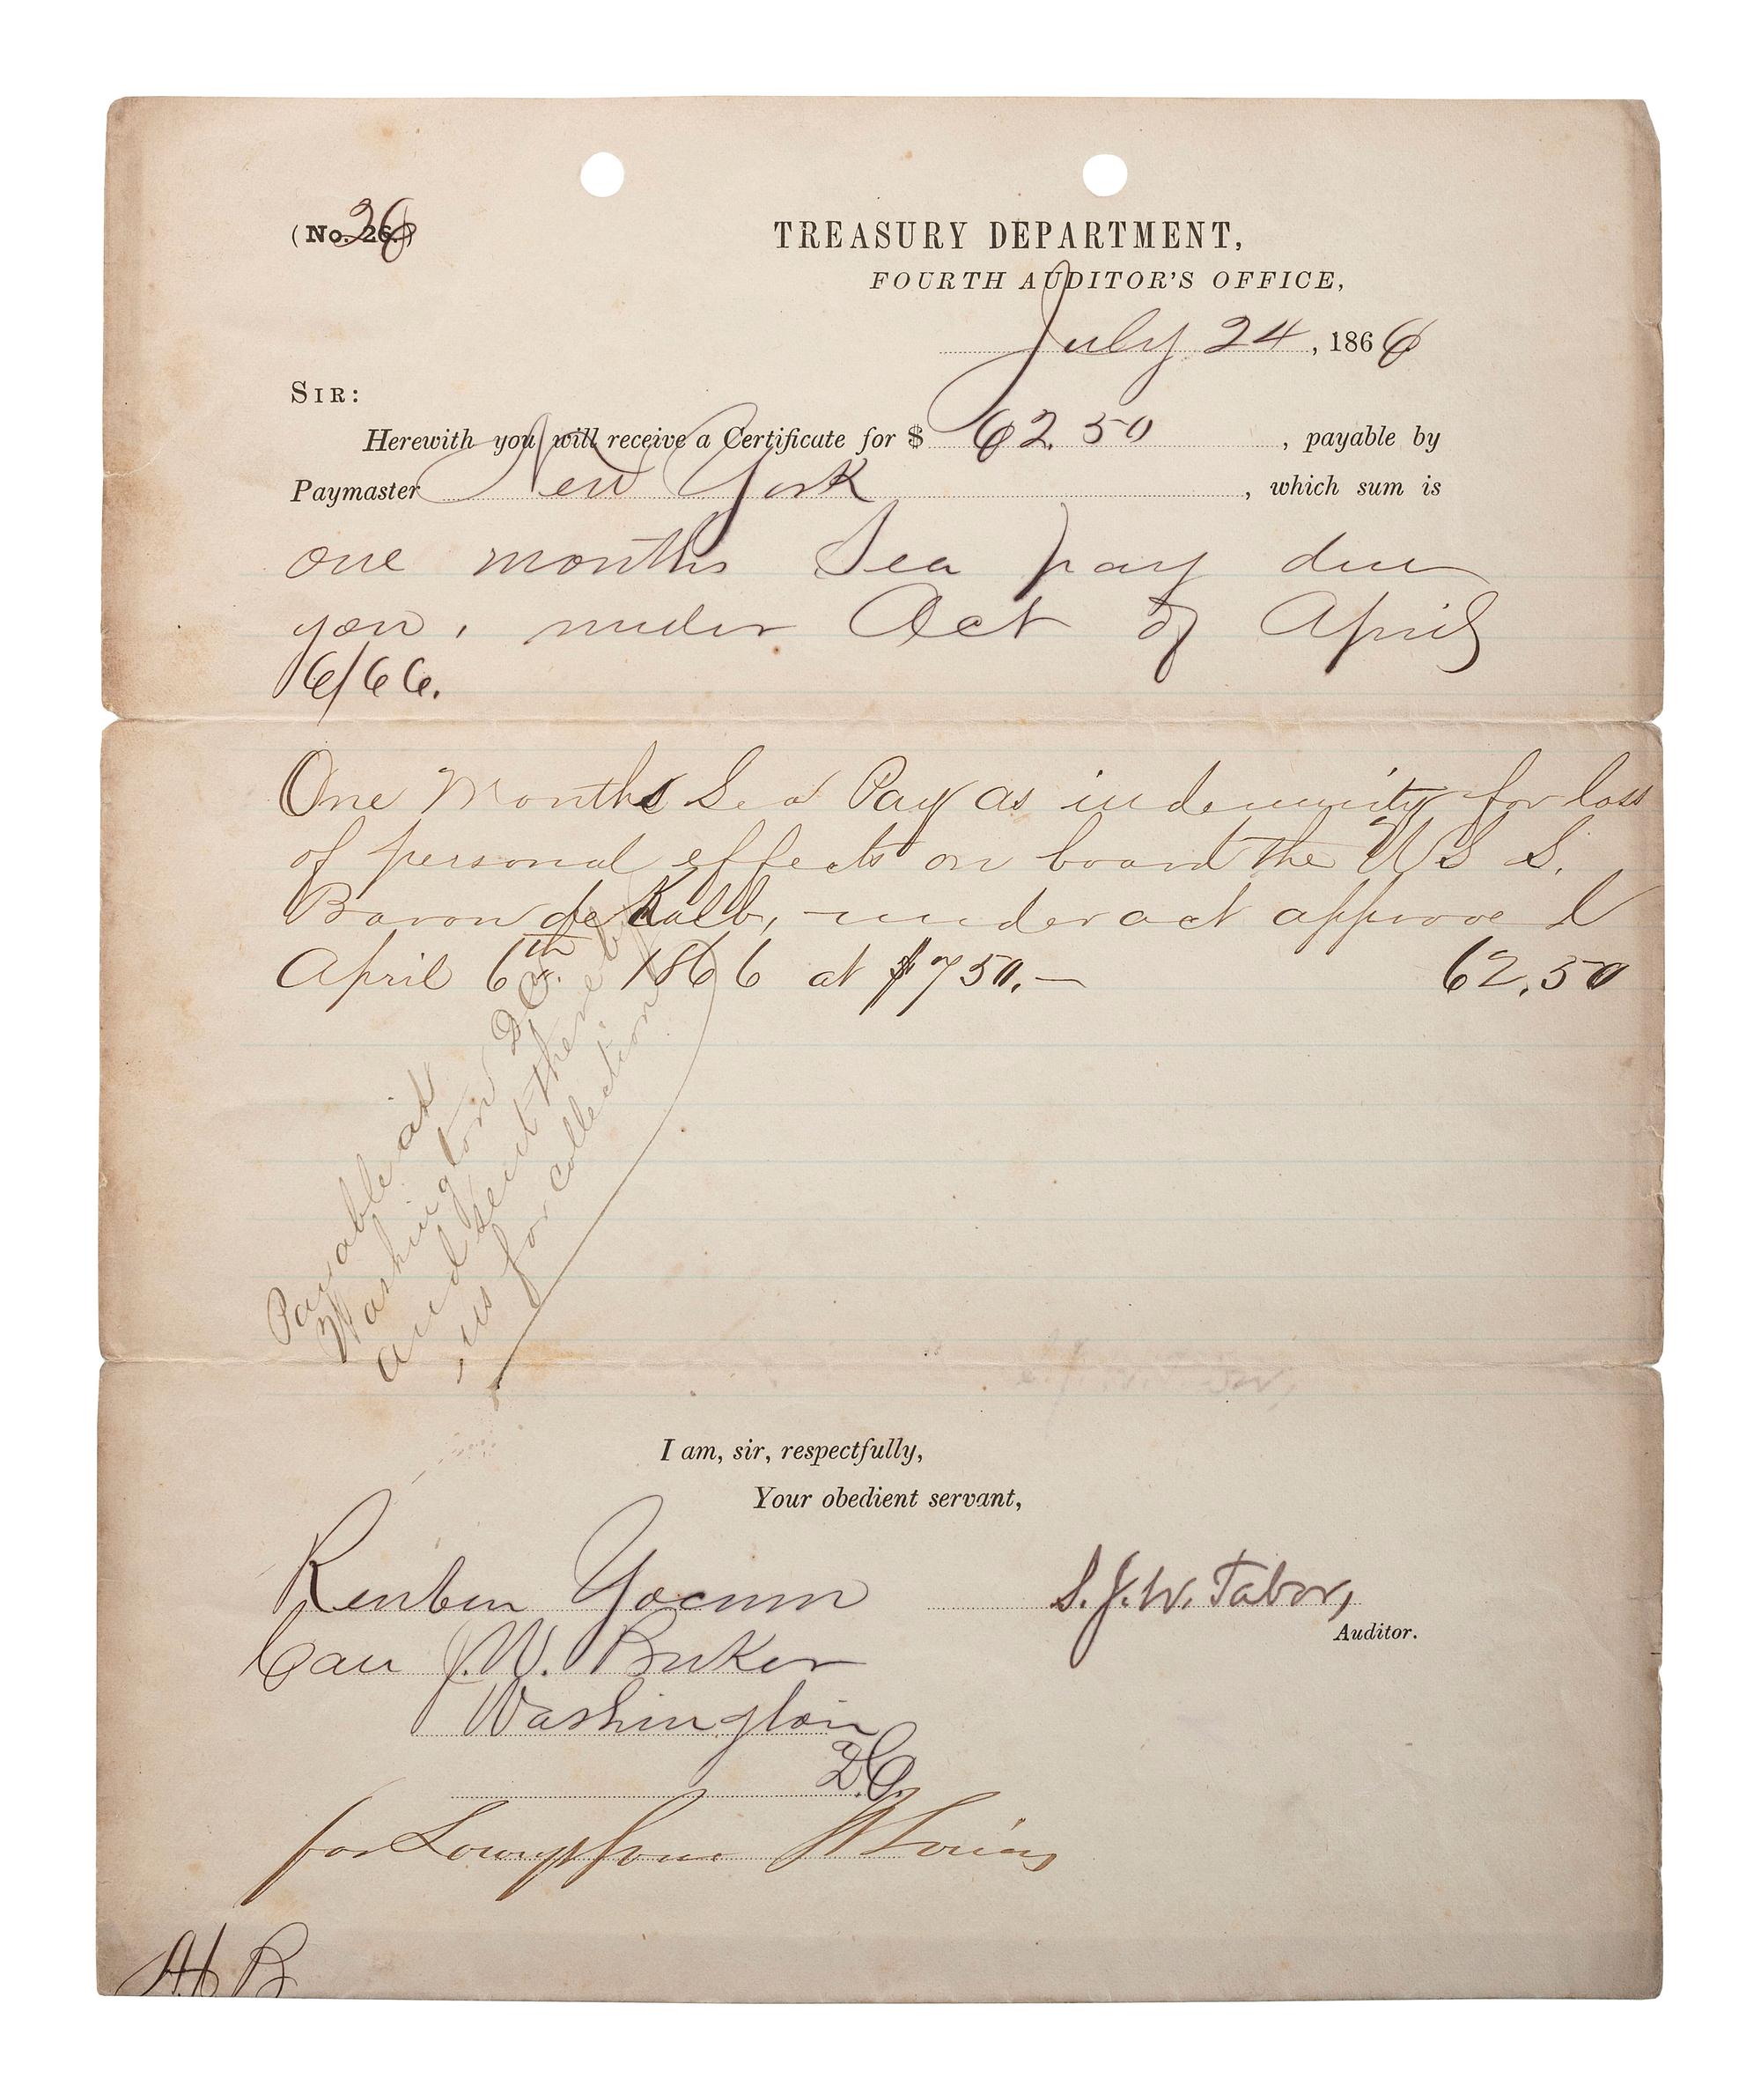 (No. 26.) 26
TREASURY DEPARTMENT,
FOURTH AUDITOR'S OFFICE,
July 24, 1866
SIR:
Herewith you will receive a Certificate for $ 62.50, payable by
Paymaster New York, which sum is
one months Sea pay due
you, under Act of April
6/66.
One Months Sea Pay as indemnity for loss
of personal effects on board the U S S.
Baron de Kalb, under act approved
April 6th 1866 at $750.— 62.50
Payable at
Washington D.C.
and sent there by
us for collection
I am, sir, respectfully,
Your obedient servant,
Reuben Yocum
S.J.W. Tabor,
Auditor.
Care J.W. Parker
Washington
D.C.
for